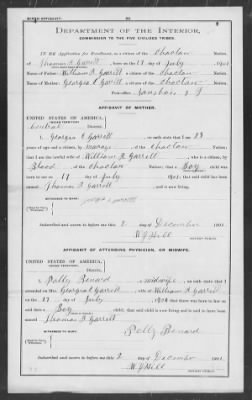 BIRTH AFFIDAVIT.
DEPARTMENT OF THE INTERIOR,
COMMISSION TO THE FIVE CIVILIZED TRIBES.
IN RE Application for Enrollment, as a citizen of the Choctaw Nation,
of Thomas R Garrett, born on the 17 day of July, 1901
Name of Father: William R Garrett a citizen of the Choctaw Nation.
Name of Mother: Georgia E Garrett a citizen of the Choctaw Nation.
Postoffice
AFFIDAVIT OF MOTHER.
UNITED STATES OF AMERICA,
INDIAN TERRITORY,
Central District.
I, Georgia E Garrett, on oath state that I am 23
years of age and a citizen by marriage, of the Choctaw Nation;
that I am the lawful wife of William R Garrett, who is a citizen, by
Blood of the Choctaw Nation; that a Boy child was
born to me on 17 day of July 1901; that said child has been
named Thomas R Garrett, and is now living.
WITNESSES TO MARK:
Subscribed and sworn to before me this 2 day of December 1901.
W J Hill
NOTARY PUBLIC.
AFFIDAVIT OF ATTENDING PHYSICIAN, OR MIDWIFE.
UNITED STATES OF AMERICA,
INDIAN TERRITORY,
District.
I, Polly Benard, a midwife, on oath state that I
attended on Mrs. Georgia E Garrett, wife of William R Garrett
on the 17 day of July, 1901; that there was born to her on
said date a Boy child; that said child is now living and is said to have been
named Thomas R Garrett
Polly Benard
WITNESSES TO MARK:
Subscribed and sworn to before me this 2 day of December 1901.
W J Hill
NOTARY PUBLIC.